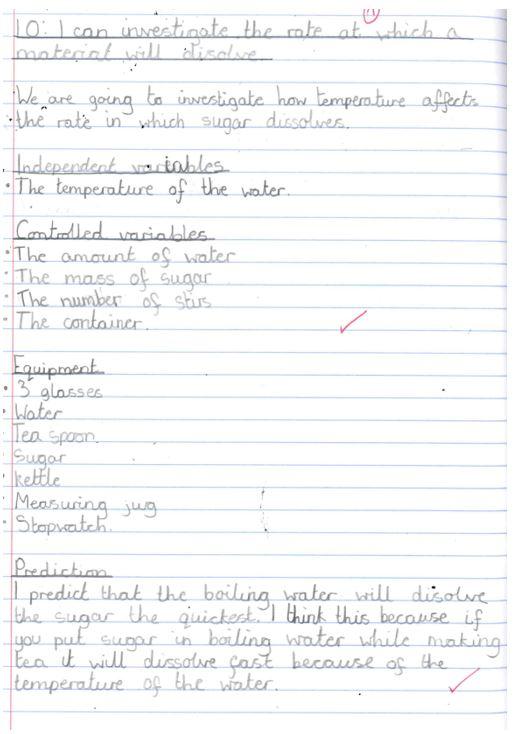 LO: I can investigate the rate at which a
material will disolve.
We are going to investigate how temperature affects
the rate in which sugar dissolves.
Independent variables
• The temperature of the water.
Controlled variables
• The amount of water
• The mass of sugar
• The number of stirs
• The container.
Equipment
• 3 glasses
• Water
Tea spoon.
Sugar
kettle
• Measuring jug
• Stopwatch.
Prediction
I predict that the boiling water will disolve
the sugar the quickest. I think this because if
you put sugar in boiling water while making
tea it will dissolve fast because of the
temperature of the water.